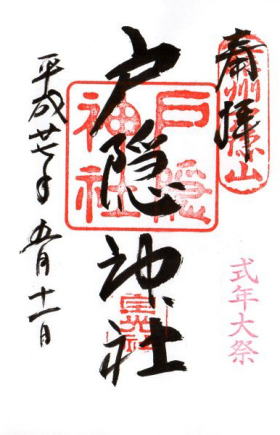 奉拝
信州戸隠山
式年大祭
戸隠神社
戸隠
神社
宝光社
平成廿七年 五月十一日